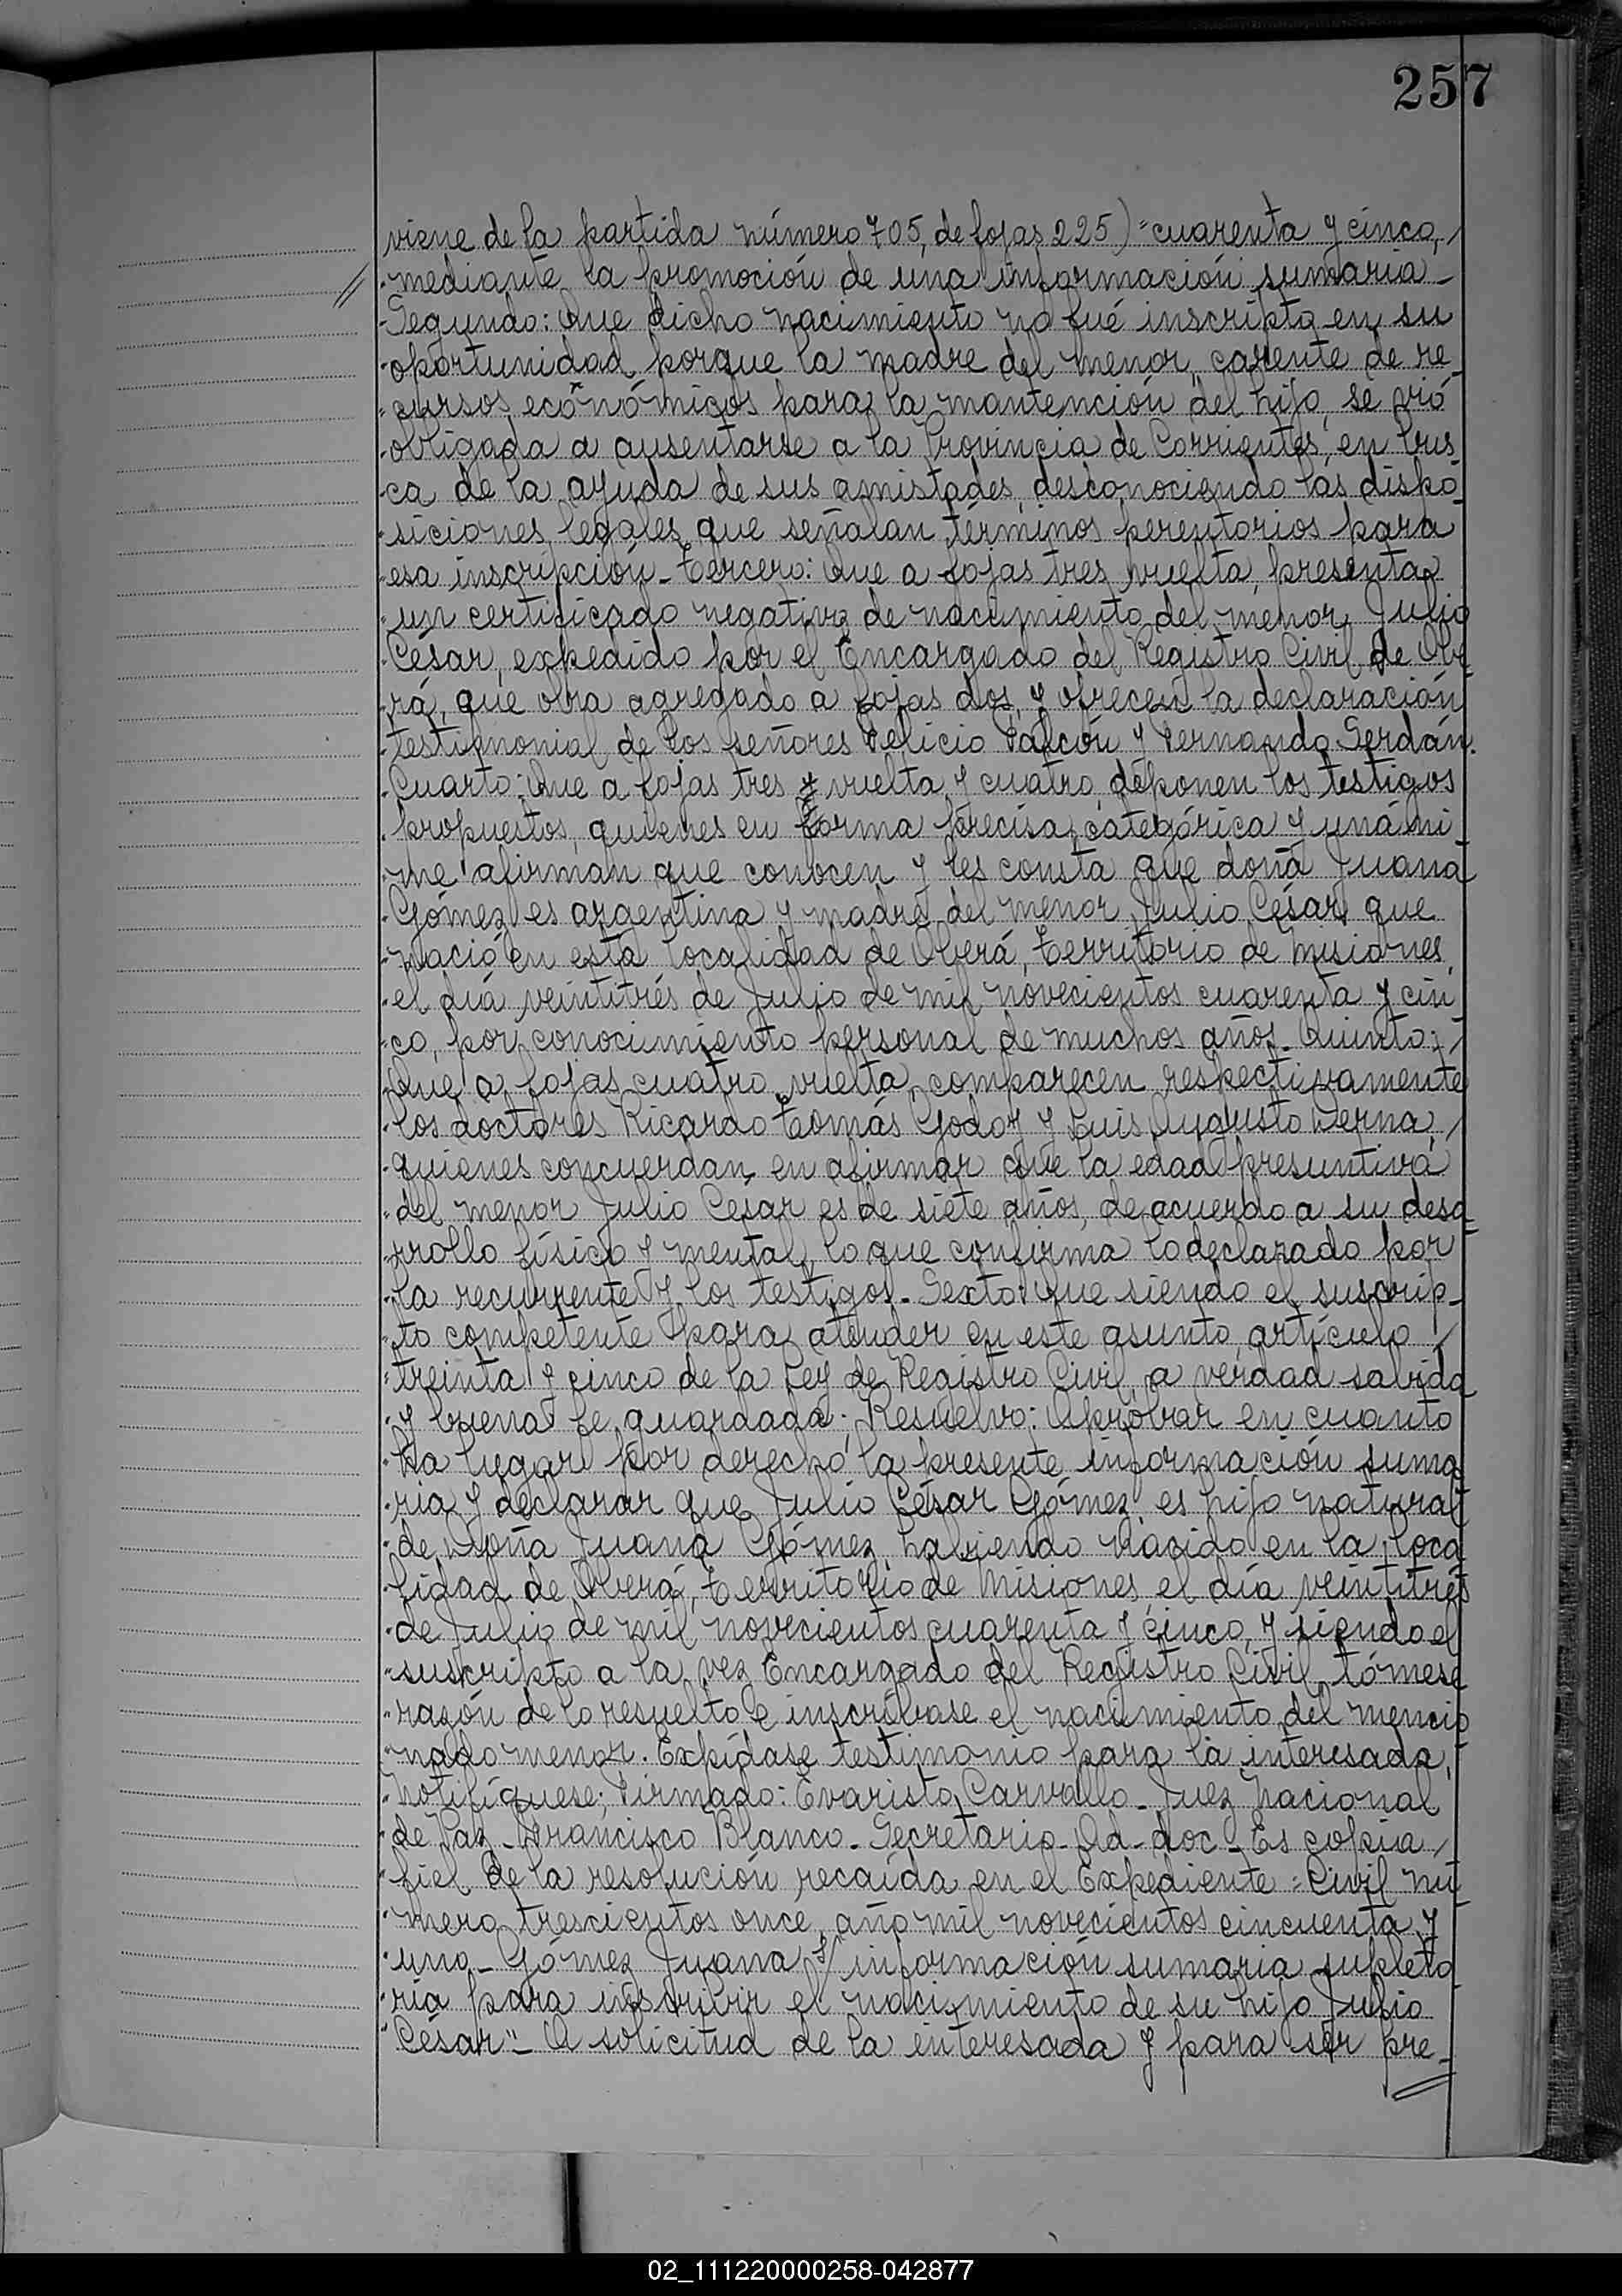 257
viene de la partida número 705, de fojas 225) "cuarenta y cinco,
mediante la promoción de una información sumaria_
Segundo: Que dicho nacimiento no fué inscripto en su
oportunidad, porque la madre del menor, carente de re_
cursos económicos para la mantención del hijo, se vió
obligada a ausentarse a la Provincia de Corrientes, en bus_
ca de la ayuda de sus amistades, desconociendo las dispo_
siciones legales que señalan términos perentorios para
esa inscripción_ Tercero: Que a fojas tres vuelta, presenta
un certificado negativo de nacimiento del menor Julio
César, expedido por el Encargado del Registro Civil de Obe_
rá, que obra agregado a fojas dos, y ofrecen la declaración
testimonial de los señores Felicio Falcón y Fernando Serdán.
Cuarto: Que a fojas tres y vuelta y cuatro, deponen los testigos
propuestos, quienes en forma precisa, categórica y unáni
me afirman que conocen y les consta que doña Juana
Gómez es argentina y madre del menor Julio César, que
nació en esta localidad de Oberá, Territorio de Misiones,
el día veintitrés de Julio de mil novecientos cuarenta y cin
co, por conocimiento personal de muchos años_ Quinto:
Que a fojas cuatro vuelta, comparecen respectivamente
los doctores Ricardo Tomás Godoy y Luis Augusto Derna,
quienes concuerdan en afirmar que la edad presuntiva
del menor Julio César es de siete años, de acuerdo a su desa_
rrollo físico y mental, lo que confirma lo declarado por
la recurrente y los testigos_ Sexto: Que siendo el suscrip_
to competente para atender en este asunto, artículo
treinta y cinco de la Ley de Registro Civil, a verdad sabida
y buena fe guardada; Resuelvo: Aprobar en cuanto
ha lugar por derecho la presente información suma
ria y declarar que Julio César Gómez, es hijo natural
de Doña Juana Gómez, habiendo nacido en la loca
lidad de Oberá, Territorio de Misiones, el día veintitrés
de Julio de mil novecientos cuarenta y cinco, y siendo el
suscripto a la vez Encargado del Registro Civil, tómese
razón de lo resuelto e inscríbase el nacimiento del mencio
nado menor. Expídase testimonio para la interesada,
notifíquese; Firmado: Evaristo Carvallo_ Juez Nacional
de Paz_ Francisco Blanco_ Secretario_ Ad_doc_ Es copia
fiel de la resolución recaída en el Expediente: Civil nú
mero trescientos once, año mil novecientos cincuenta y
uno_ Gómez Juana s/ información sumaria supleto
ria para inscribir el nacimiento de su hijo Julio
César"_ A solicitud de la interesada y para ser pre_
02_111220000258-042877